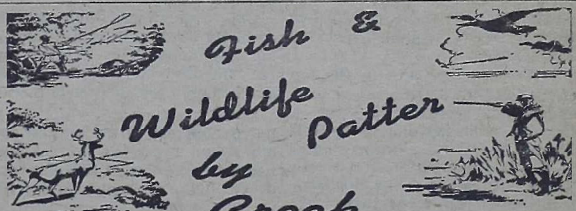 Fish &
Wildlife
Patter
by